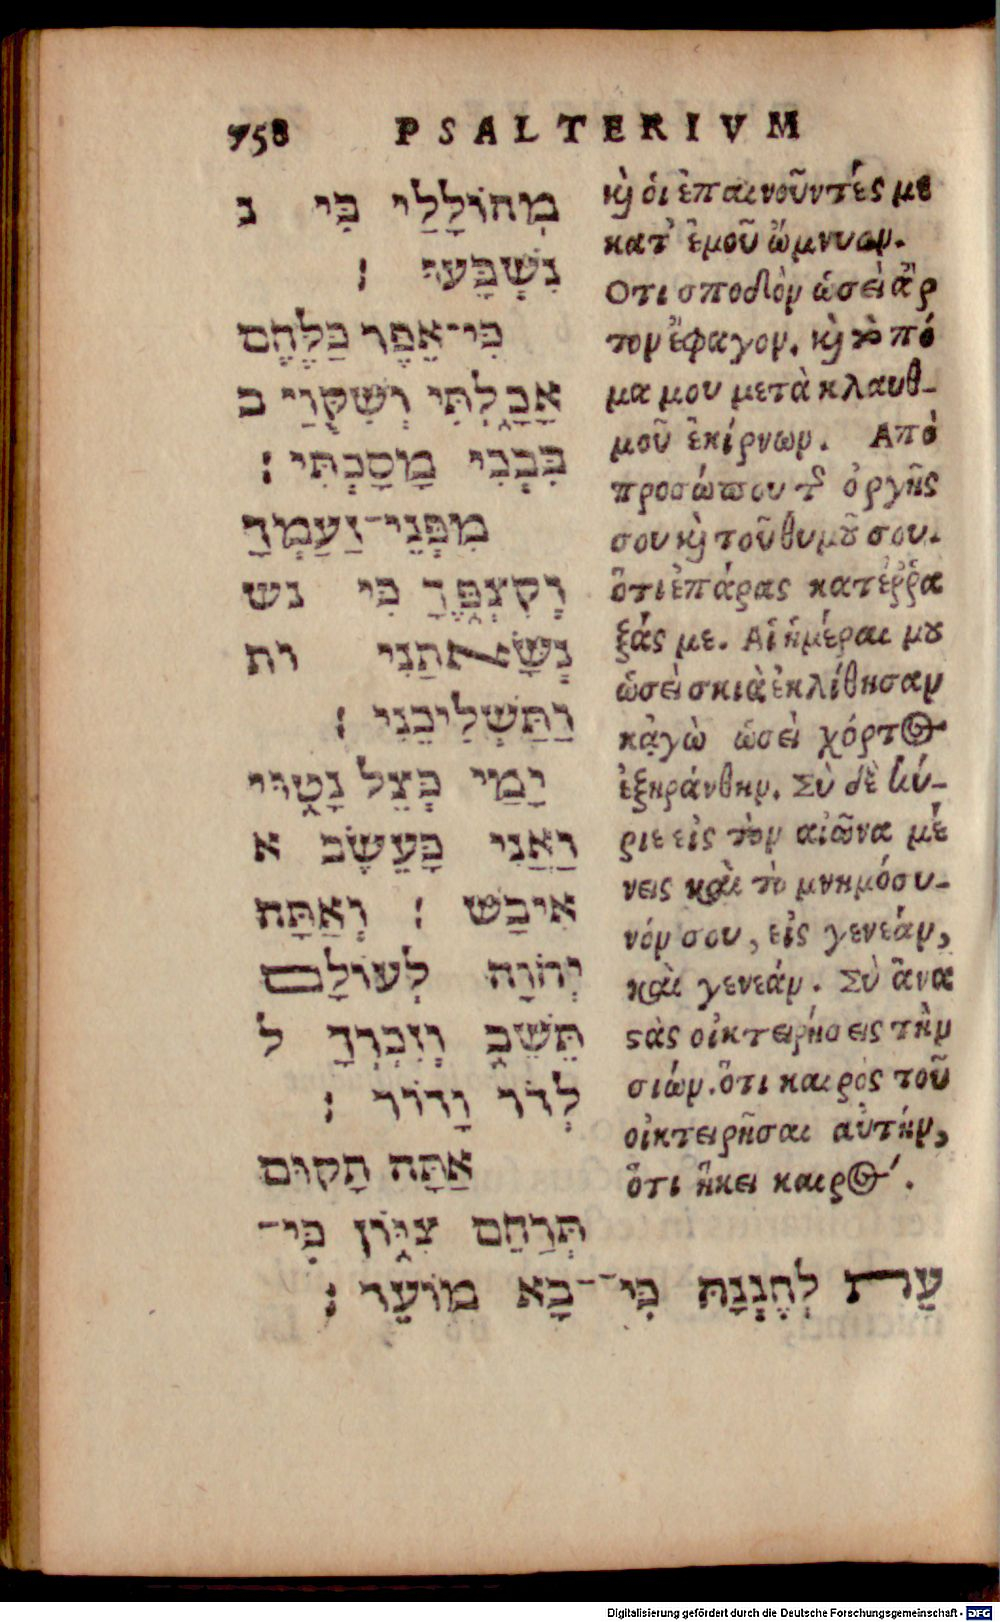 758 PSALTERIVM
מְהוֹלָלַי בִּי נ
נִשְׁבָּעוּ ׃
כִּי־אֵפֶר כַּלֶּחֶם
אָכָלְתִּי וְשִׁקֻּוַי ב
בִּבְכִי מָסָכְתִּי ׃
מִפְּנֵי־זַעַמְךָ
וְקִצְפֶּךָ כִּי נש
נְשָׂאתַנִי ות
וַתַּשְׁלִיכֵנִי ׃
יָמַי כְּצֵל נָטוּי
וַאֲנִי כָּעֵשֶׂב א
אִיבָשׁ ׃ וְאַתָּה
יְהֹוָה לְעוֹלָם
תֵּשֵׁב וְזִכְרְךָ ל
לְדֹר וָדוֹר ׃
אַתָּה תָקוּם
תְּרַחֵם צִיּוֹן כִּי־
עֵת לְחֶנְנָהּ כִּי־־בָא מוֹעֵד ׃
κ̀ οἱ ἐπαινοῦντές με
κατ' ἐμοῦ ὤμνυον.
Οτι σποδὸν ὡσεὶ ἄρ
τον ἔφαγον. κ̀ τὸ πό
μα μου μετὰ κλαυθ-
μοῦ ἐκίρνων. Απὸ
προσώπου τ̃ ὀργῆς
σου κ̀ τοῦ θυμȣ̃ σου.
ὅτι ἐπάρας κατέῤῥα
ξάς με. Αἱ ἡμέραι μȣ
ὡσεὶ σκιὰ ἐκλίθησαν
κᾀγὼ ὡσεὶ χόρτος
ἐξηράνθην. Σὺ δὲ κύ-
ριε εἰς τὸν αἰῶνα μέ
νεις καὶ τὸ μνημόσυ-
νόν σου, εἰς γενεάν,
καὶ γενεάν. Σὺ ἀνα
ϛὰς οἰκτειρήσεις τὴν
σιών. ὅτι καιρὸς τοῦ
οἰκτειρῆσαι αὐτήν,
ὅτι ἥκει καιρός.
Digitalisierung gefördert durch die Deutsche Forschungsgemeinschaft - DFG